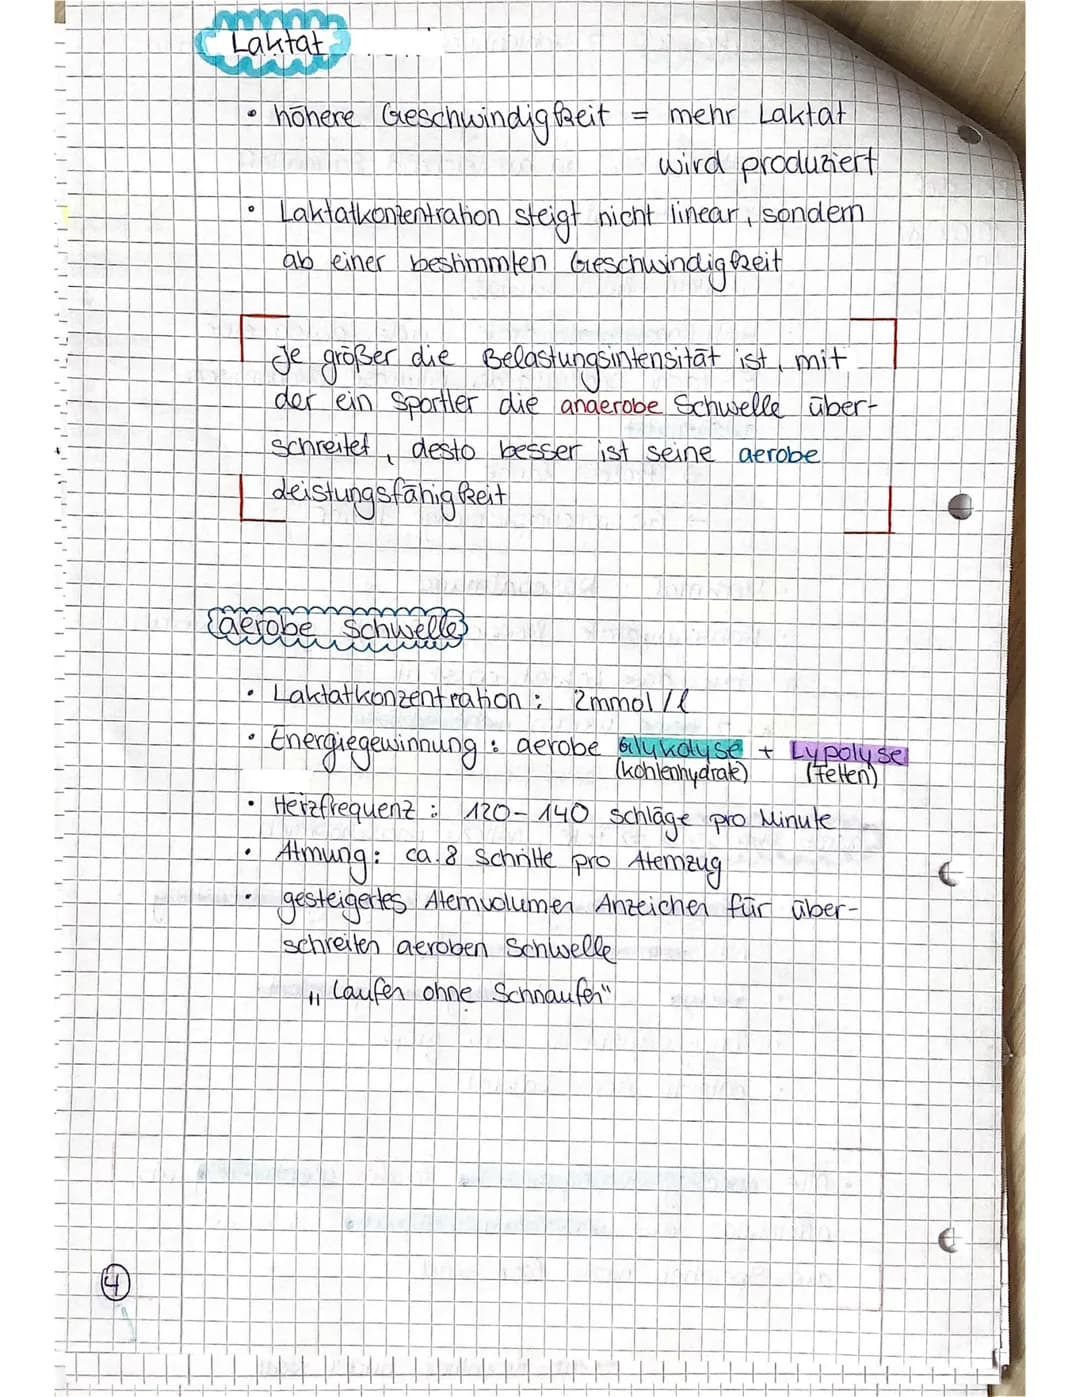 Laktat
• höhere Geschwindigkeit = mehr Laktat
wird produziert
• Laktatkonzentration steigt nicht linear, sondern
ab einer bestimmten Geschwindigkeit
Je größer die Belastungsintensität ist, mit
der ein Sportler die anaerobe Schwelle über-
schreitet, desto besser ist seine aerobe
Leistungsfähigkeit
aerobe Schwelle
• Laktatkonzentration : 2mmol/l
• Energiegewinnung : aerobe Glykolyse + Lypolyse
(kohlenhydrate) (Fetten)
• Herzfrequenz : 120-140 Schläge pro Minute
• Atmung : ca. 8 Schritte pro Atemzug
• gesteigertes Atemvolumen Anzeichen für über-
schreiten aeroben Schwelle
„Laufen ohne Schnaufen"
4